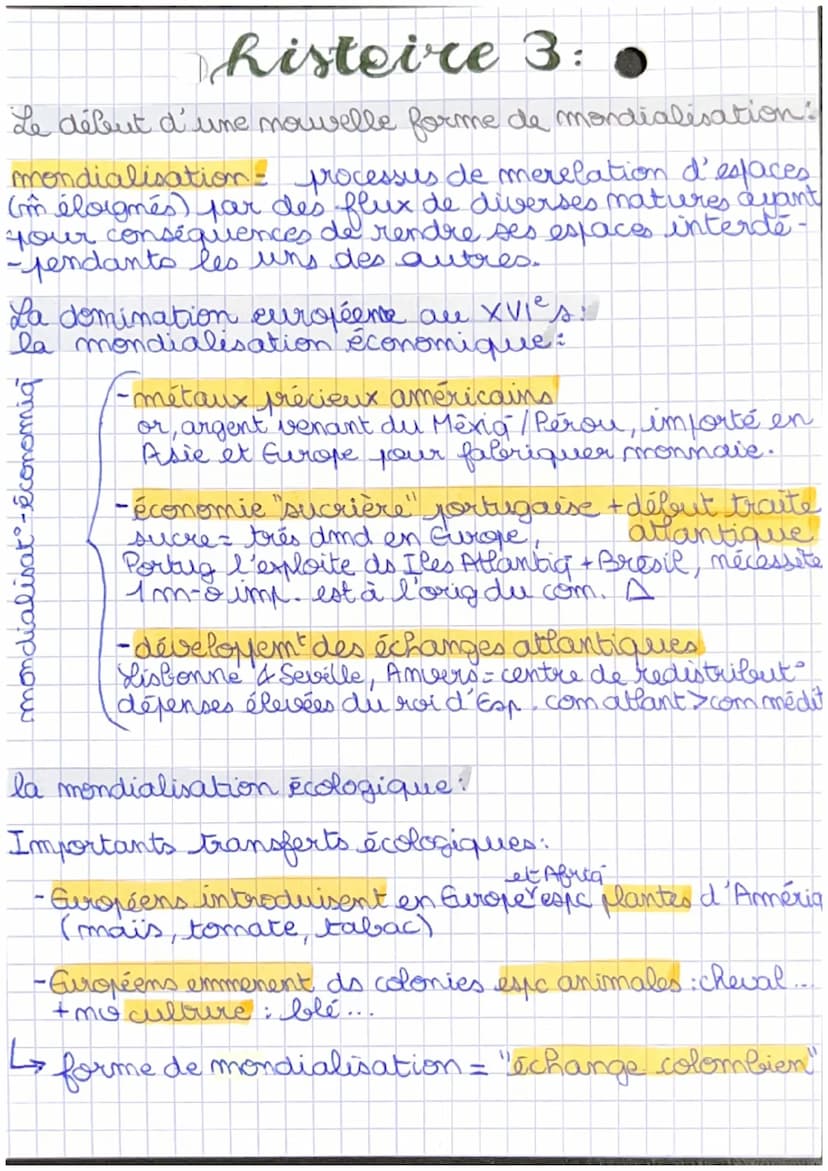 histoire 3:
Le début d'une nouvelle forme de mondialisation:
mondialisation = processus de merelation d'espaces
(m̂ éloignés) par des flux de diverses natures ayant
pour conséquences de rendre ses espaces interdé-
-pendants les uns des autres.
La domination européenne au XVIe s:
la mondialisation économique:
mondialisat°-économiq
-métaux précieux américains
or, argent venant du Mexiq/Pérou, importé en
Asie et Europe pour fabriquer monnaie.
-économie "sucrière" portugaise + début traite
atlantique
sucre = très dmd en Europe,
Portug l'exploite ds Iles Atlantiq + Brésil, nécessite
1 m-o imp. est à l'orig du com. Δ
-développemt des échanges atlantiques
Lisbonne & Seville, Anvers = centre de redistribut°
dépenses élevées du roi d'Esp. com atlant > com médit
la mondialisation écologique:
Importants transferts écologiques:
-Européens introduisent en Europe et Afriq espc plantes d'Amériq
(maïs, tomate, tabac)
-Européens emmenent ds colonies espc animales : cheval...
+ culture : blé...
↳ forme de mondialisation = "échange colombien"